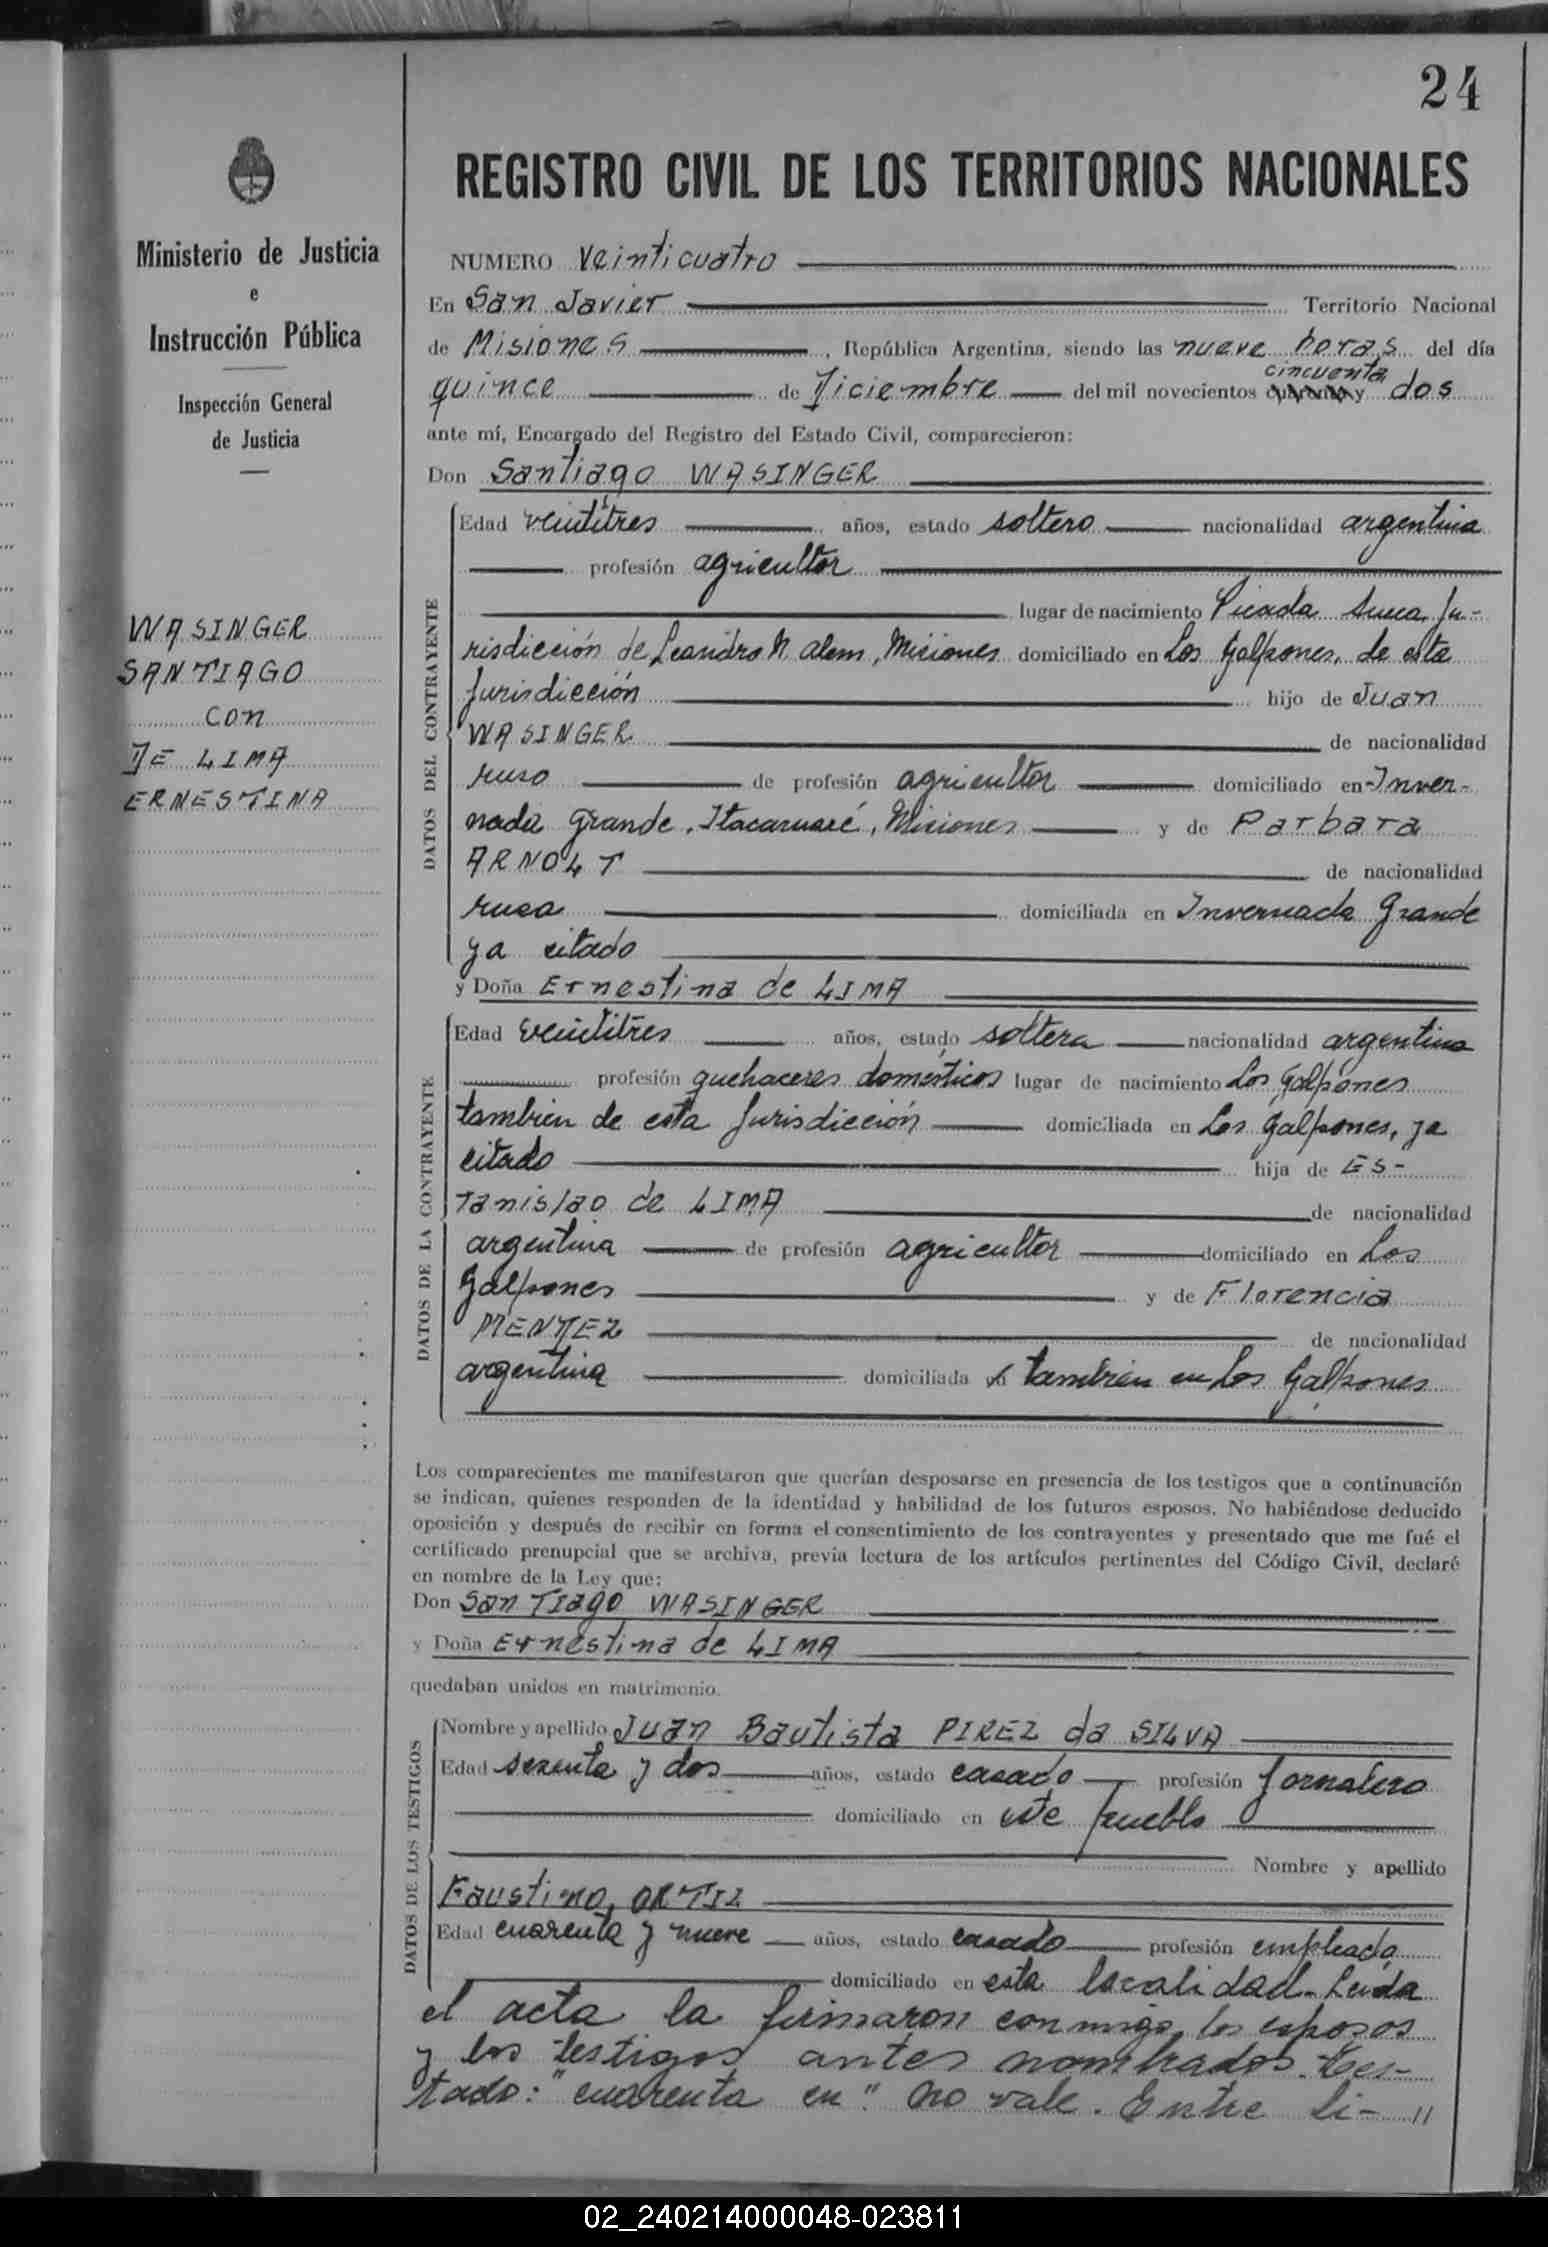 24
REGISTRO CIVIL DE LOS TERRITORIOS NACIONALES
Ministerio de Justicia
e
Instrucción Pública
Inspección General
de Justicia
WASINGER
SANTIAGO
con
DE LIMA
ERNESTINA
NUMERO Veinticuatro
En San Javier Territorio Nacional
de Misiones, República Argentina, siendo las nueve horas del día
cincuenta
quince de Diciembre del mil novecientos cuarenta y dos
ante mí, Encargado del Registro del Estado Civil, comparecieron:
Don Santiago WASINGER
DATOS DEL CONTRAYENTE
Edad veintitres años, estado soltero nacionalidad argentina
profesión agricultor
lugar de nacimiento Picada Sueca, Ju-
risdicción de Leandro N. Alem, Misiones domiciliado en Los Galpones, de esta
Jurisdicción hijo de Juan
WASINGER de nacionalidad
ruso de profesión agricultor domiciliado en Inver-
nada Grande, Itacaruaré, Misiones y de Barbara
ARNOLT de nacionalidad
rusa domiciliada en Invernada Grande
ya citado
y Doña Ernestina de LIMA
DATOS DE LA CONTRAYENTE
Edad veintitres años, estado soltera nacionalidad argentina
profesión quehaceres domésticos lugar de nacimiento Los Galpones
tambien de esta Jurisdicción domiciliada en Los Galpones, ya
citado hija de Es-
tanislao de LIMA de nacionalidad
argentina de profesión agricultor domiciliado en Los
Galpones y de Florencia
MENDEZ de nacionalidad
argentina domiciliada tambien en Los Galpones
Los comparecientes me manifestaron que querían desposarse en presencia de los testigos que a continuación
se indican, quienes responden de la identidad y habilidad de los futuros esposos. No habiéndose deducido
oposición y después de recibir en forma el consentimiento de los contrayentes y presentado que me fué el
certificado prenupcial que se archiva, previa lectura de los artículos pertinentes del Código Civil, declaré
en nombre de la Ley que:
Don Santiago WASINGER
y Doña Ernestina de LIMA
quedaban unidos en matrimonio.
DATOS DE LOS TESTIGOS
Nombre y apellido Juan Bautista PIREZ da SILVA
Edad sesenta y dos años, estado casado profesión jornalero
domiciliado en este pueblo
Nombre y apellido
Faustino ORTIZ
Edad cuarenta y nueve años, estado casado profesión empleado
domiciliado en esta localidad. Leida
el acta la firmaron conmigo, los esposos
y los testigos antes nombrados. Tes-
tado: "cuarenta en". No vale. Entre li- "
02_240214000048-023811